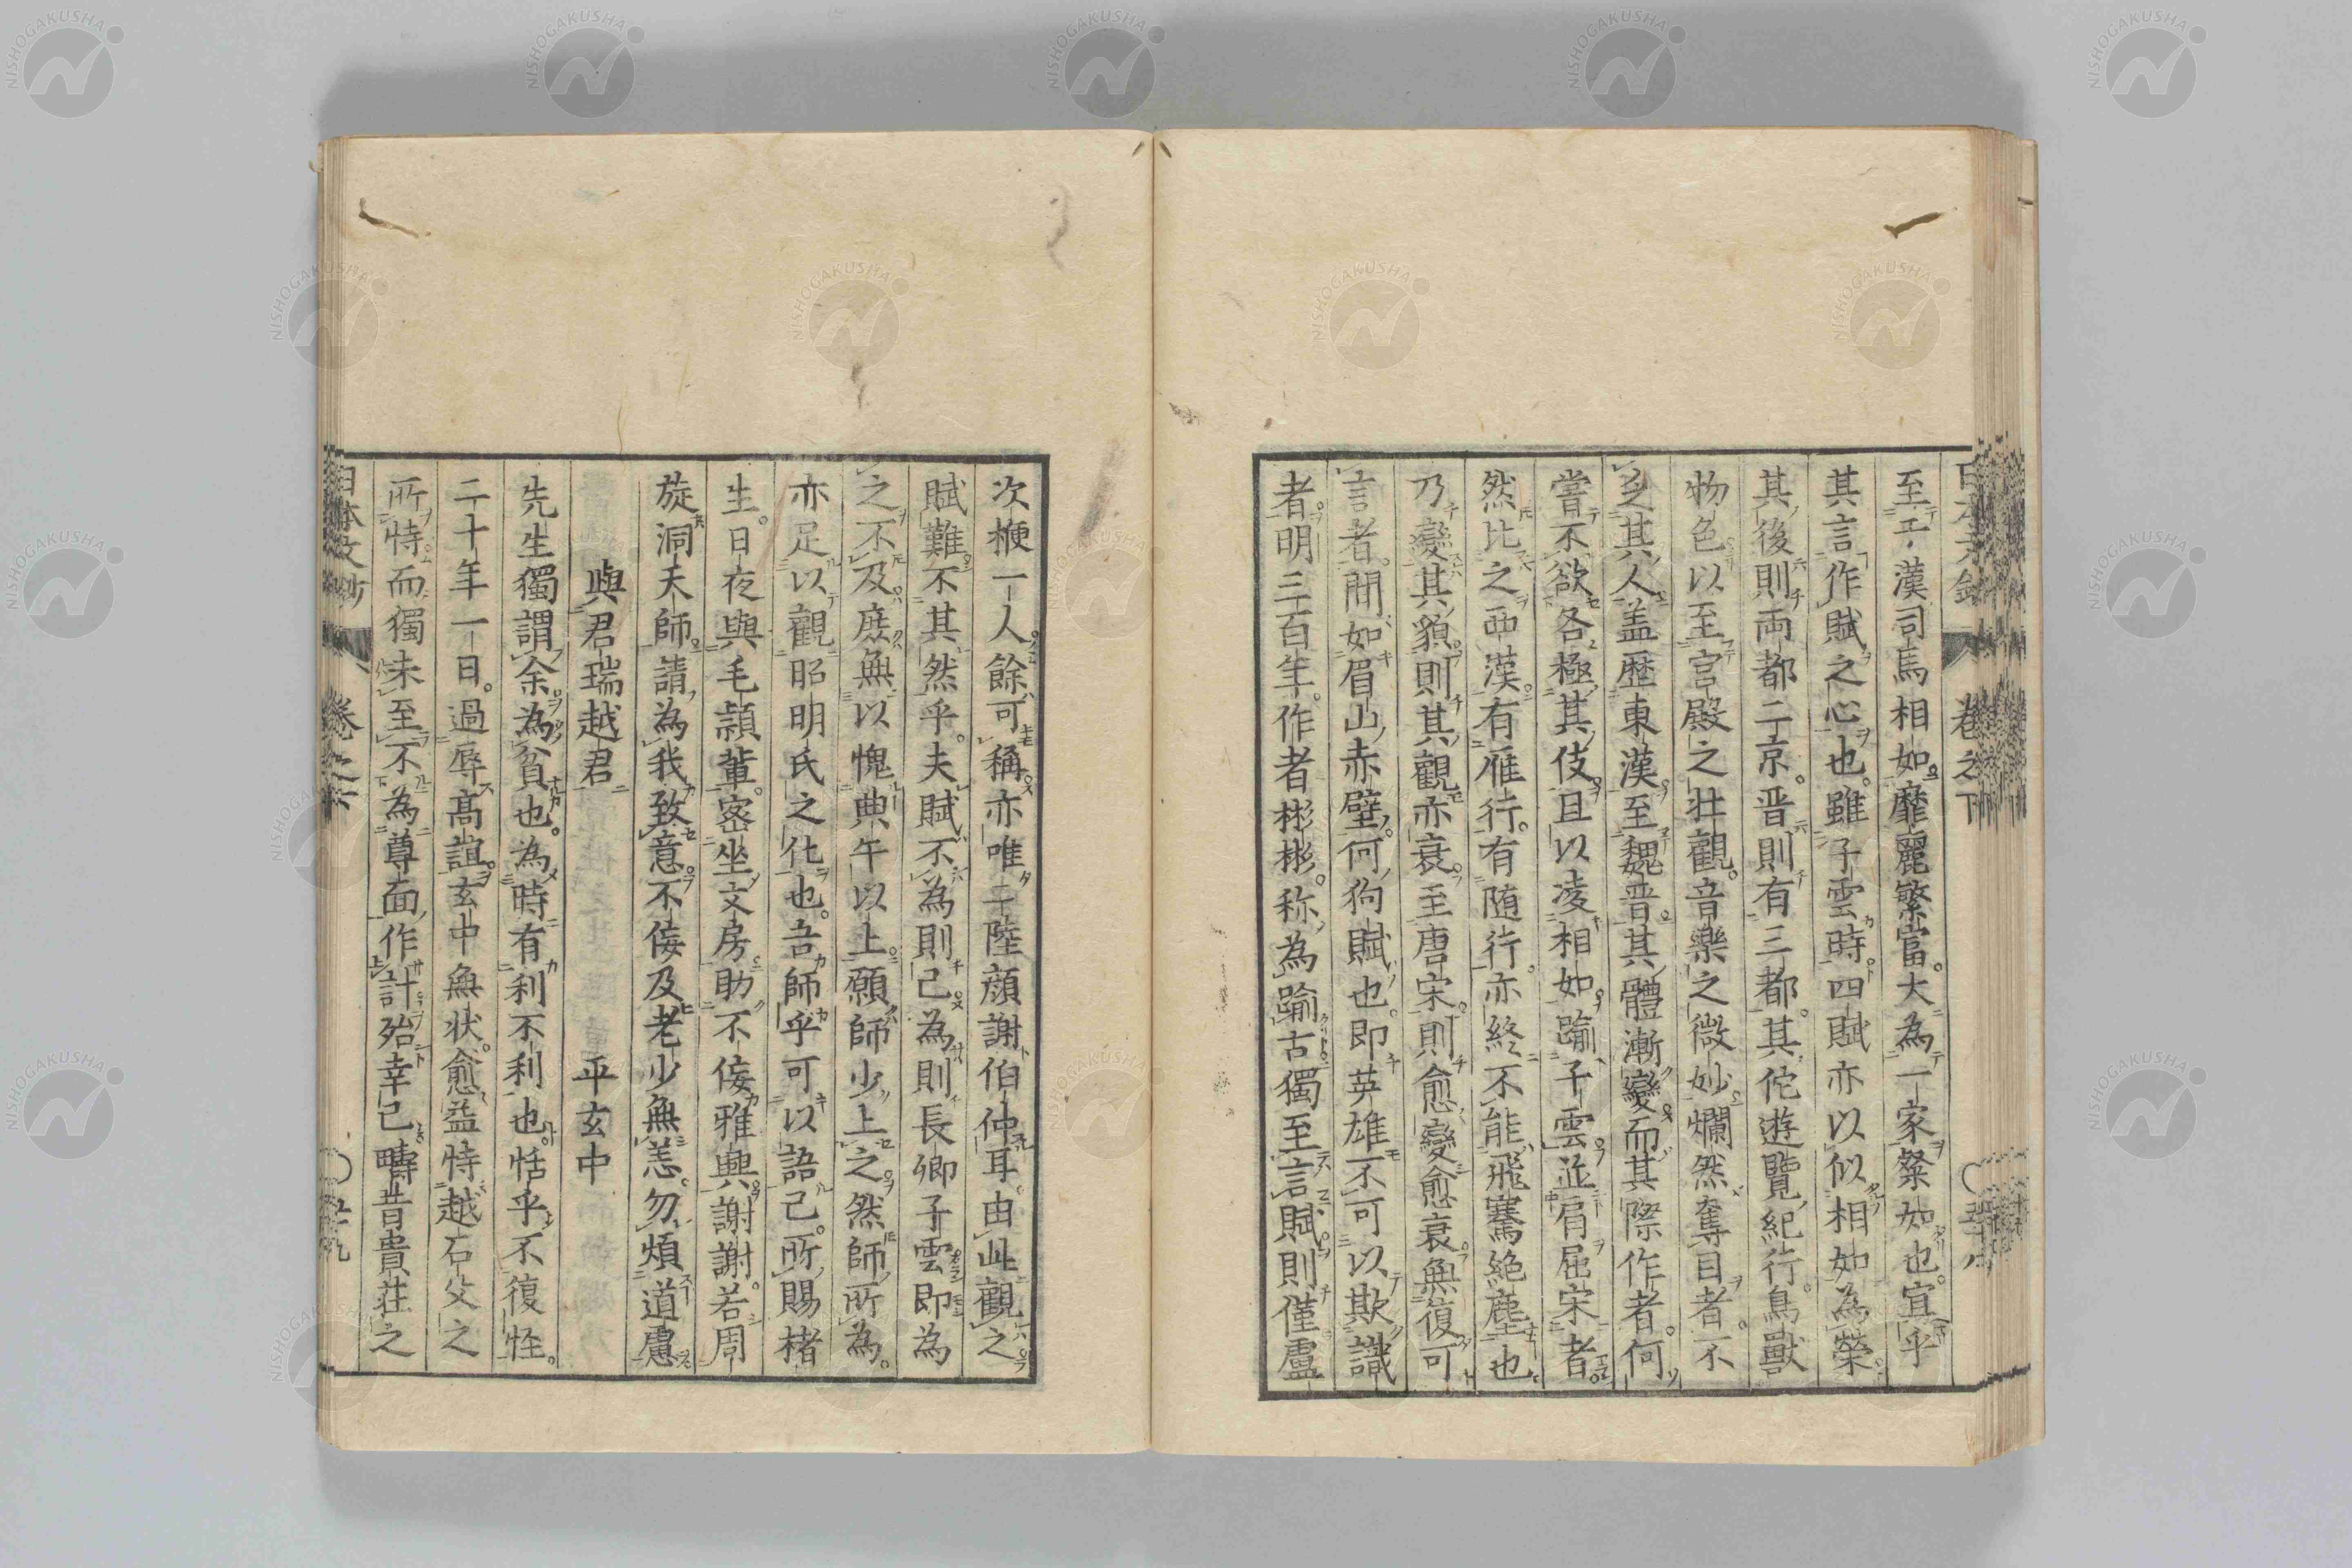 至于漢司馬相如靡麗繁富。大為一家粲如也。宜乎
其言作賦之心也。雖子雲時四賦亦以似相如為榮。
其後則両都二京。晋則有三都。其佗遊覽紀行。鳥獸
物色以至宮殿之壮觀。音樂之微妙爛然奪目者。不
乏其人盖歴東漢至魏晋其體漸變而其際作者。何
嘗不欲各極其伎且以凌相如踰子雲並肩屈宋者。
然比之西漢有雁行。有随行。亦終不能飛騫絶塵也
乃變其貌則其觀亦衰。至唐宋。則愈變愈衰無復可
言者。間如眉山赤壁。何狗賦也。即英雄不可以欺識
者。明三百年。作者彬彬。称為踰古獨至言賦則僅盧
次楩一人。餘可稱亦唯二陸顔謝伯仲耳。由此觀之
賦難不其然乎。夫賦不為則已為則長卿子雲即為
之不及庶無以愧典午以上願師少上之然師所為。
亦足以觀昭明氏之化也。吾師乎可以語已。所賜楮
生。日夜與毛頴輩。密坐文房助不佞雅興。謝謝。若周
旋洞天師。請為我致意。不佞及老少無恙。勿煩道慮
與君瑞越君 平玄中
先生獨謂余為貧也。為時有利不利也。恬乎不復怪。
二十年一日。過辱高誼。玄中無状。愈益恃越石父之
所恃而獨未至不為尊面作計殆幸已疇昔貴荘之
日本文鈔 卷之下
NISHOGAKUSHA